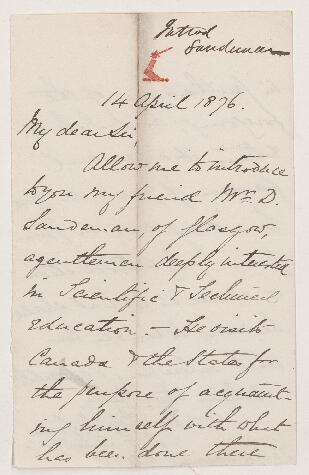 Introd
Sandeman
14 April 1876.
My dear Sir,
Allow me to introduce
to you my friend Mr. D.
Sandeman, of Glasgow,
a gentleman deeply interested
in Scientific & Technical
Education. — He visits
Canada & the States for
the purpose of acquaint-
ing himself with what
has been done there